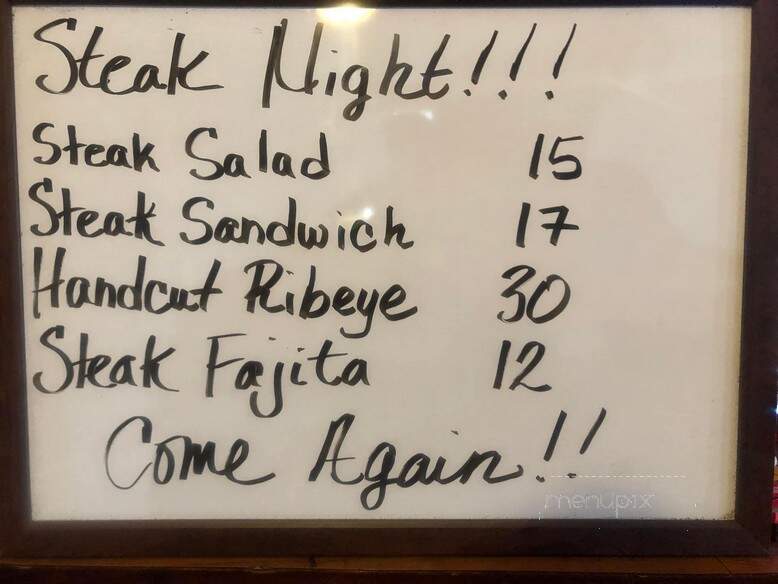 Steak Night!!!
Steak Salad 15
Steak Sandwich 17
Handcut Ribeye 30
Steak Fajita 12
Come Again!!
menupix